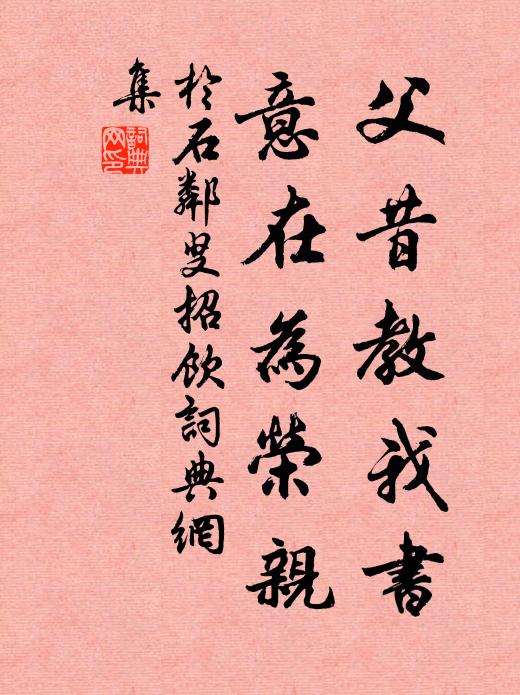 父昔教我書
意在為榮親
於石鄰叟招飲詞典網
集
詞典网印